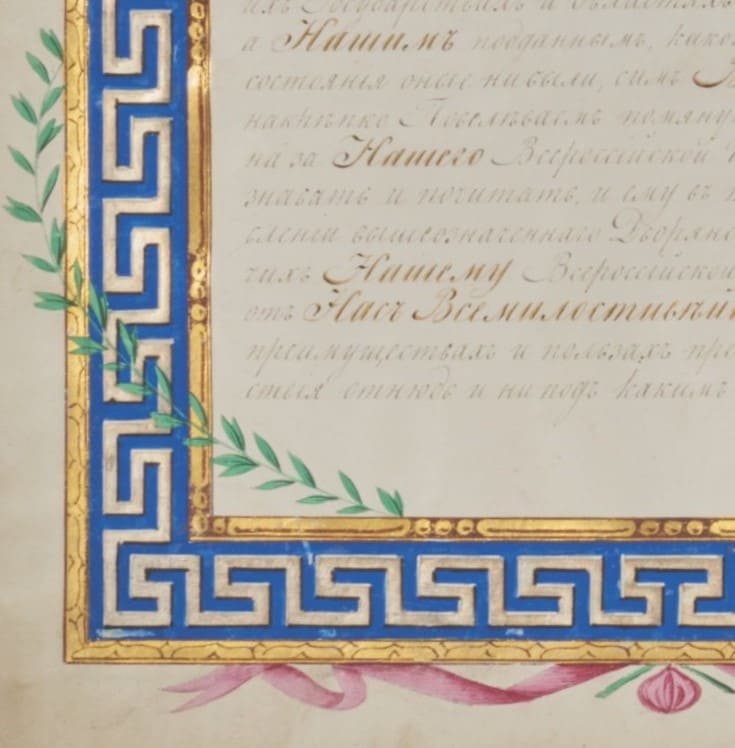 ихъ Государствахъ и Областяхъ
а Нашимъ подданнымъ, како
состоянія оные нибыли, симъ
накрѣпко Повелѣваемъ помяну
на за Нашего Всероссійской
знавать и почитать, и ему въ
бленіи вышеозначеннаго Дворянс
чихъ Нашему Всероссійской
отъ Насъ Всемилостивѣй
преимуществахъ и пользахъ пре
стія отнюдь и ни подъ какимъ